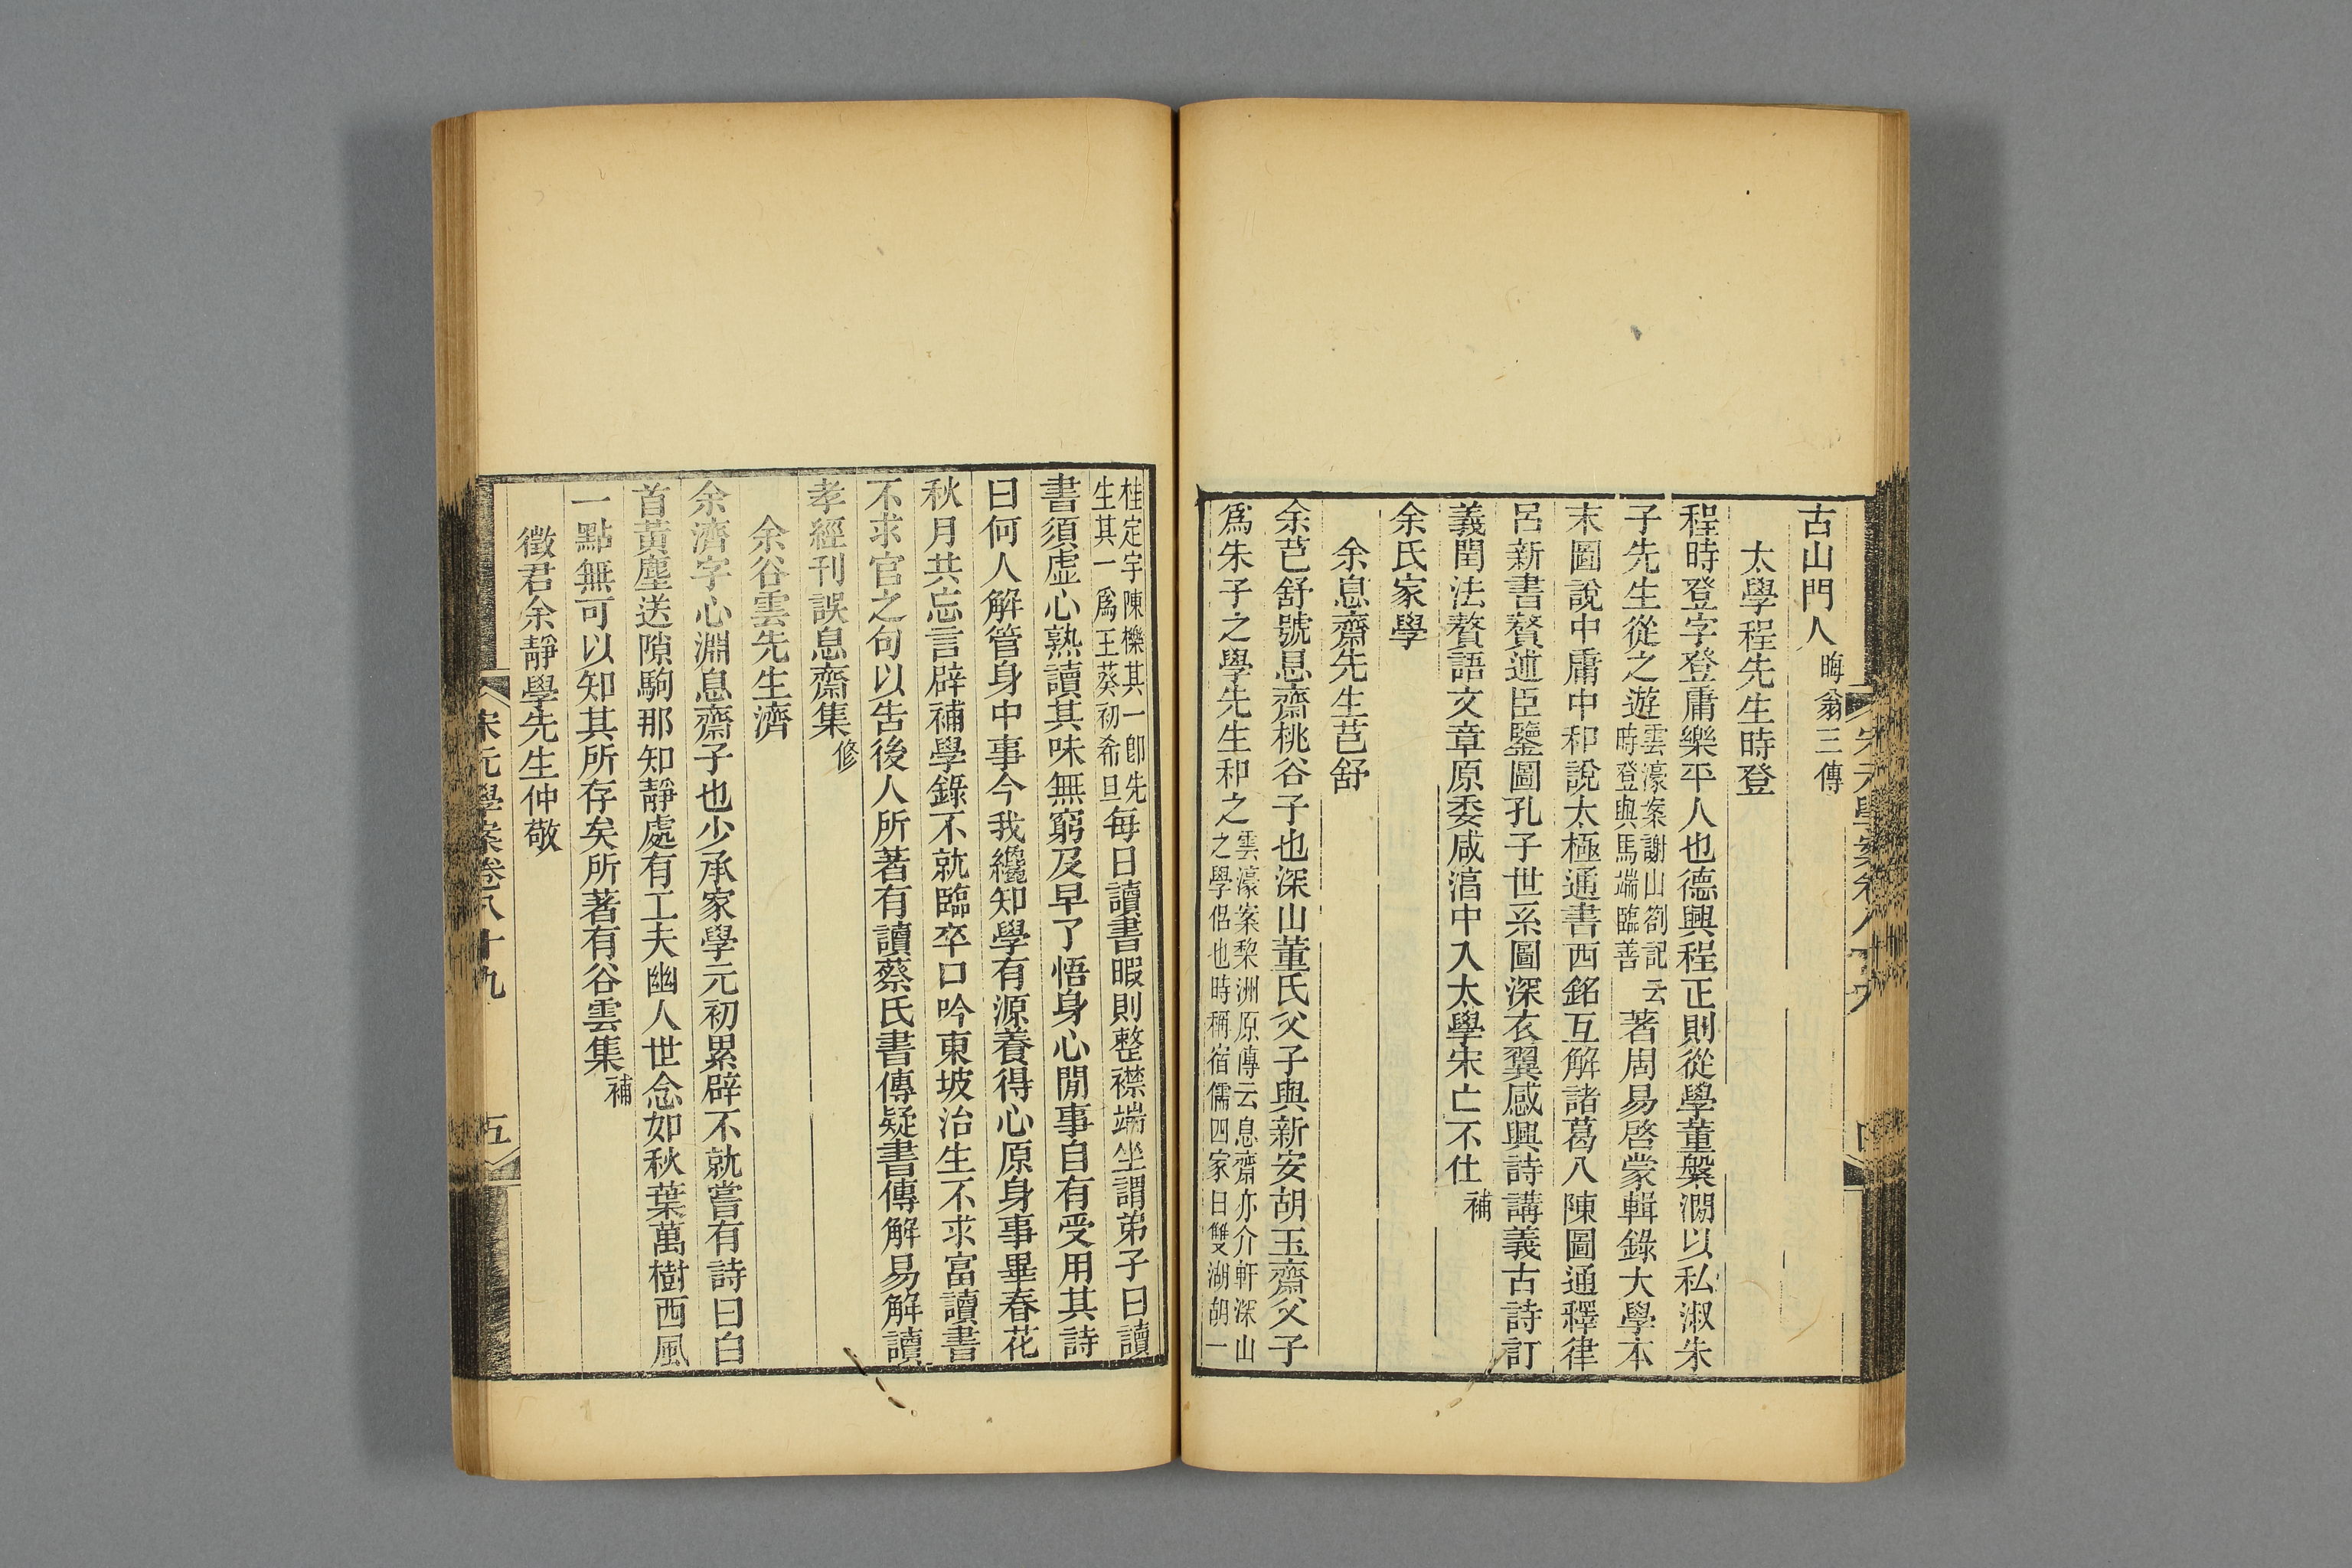 古山門人晦翁三傳
太學程先生時登
程時登字登庸樂平人也德興程正則從學董槃澗以私淑朱
子先生從之遊雲濠案謝山劄記云時登與馬端臨善著周易啓蒙輯錄大學本
末圖說中庸中和說太極通書西銘互解諸葛八陳圖通釋律
呂新書贅述臣鑒圖孔子世系圖深衣翼感興詩講義古詩訂
義閏法贅語文章原委咸湻中入太學宋亡不仕補
余氏家學
余息齋先生芑舒
余芑舒號息齋桃谷子也深山董氏父子與新安胡玉齋父子
爲朱子之學先生和之雲濠案黎洲原傳云息齋亦介軒深山之學侶也時稱宿儒四家曰雙湖胡一
桂定宇陳櫟其一卽先生其一爲王葵初希旦每日讀書暇則整襟端坐謂弟子曰讀
書須虛心熟讀其味無窮及早了悟身心閒事自有受用其詩
曰何人解管身中事今我纔知學有源養得心原身事畢春花
秋月共忘言辟補學錄不就臨卒口吟東坡治生不求富讀書
不求官之句以告後人所著有讀蔡氏書傳疑書傳解易解讀
孝經刊誤息齋集修
余谷雲先生濟
余濟字心淵息齋子也少承家學元初累辟不就嘗有詩曰白
首黃塵送隙駒那知靜處有工夫幽人世念如秋葉萬樹西風
一點無可以知其所存矣所著有谷雲集補
徵君余靜學先生仲敬
宋元學案卷八十九
五